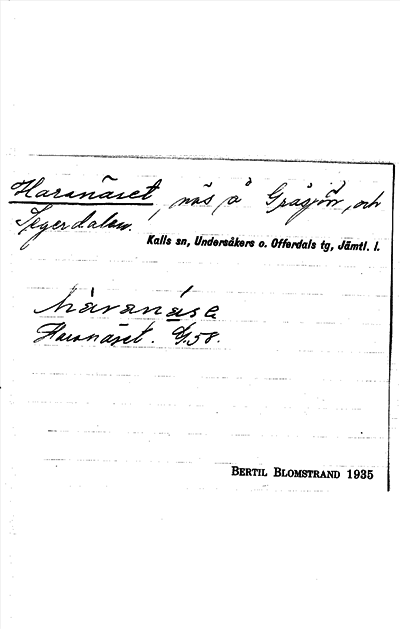 Haranäset, näs å Gråsjön, och
Segerdalen.
Kalls sn, Undersåkers o. Offerdals tg, Jämtl. l.
hàranása
Haranäset. G.58.
BERTIL BLOMSTRAND 1935